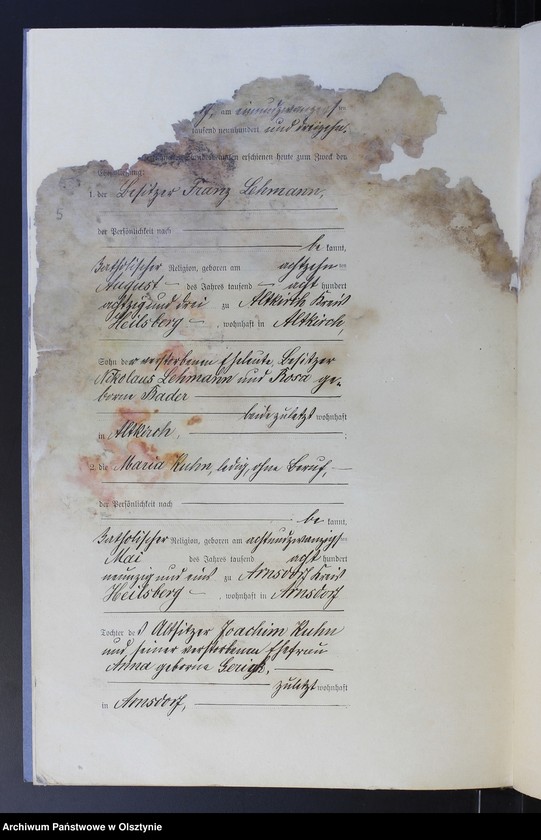 am einundzwanzigsten
tausend neunhundert und dreizehn.
Standesbeamten erschienen heute zum Zweck der
Eheschließung:
1. der Besitzer Franz Lehmann,
5
der Persönlichkeit nach
be kannt,
katholischer Religion, geboren am achtzehnten
August des Jahres tausend acht hundert
achtzig und drei zu Altkirch Kreis
Heilsberg, wohnhaft in Altkirch
Sohn der verstorbenen Eheleute, Besitzer
Nikolaus Lehmann und Rosa ge-
borene Bader
beide zuletzt wohnhaft
in Altkirch,
2. die Maria Kuhn, ledig, ohne Beruf,
der Persönlichkeit nach
be kannt,
katholischer Religion, geboren am achtundzwanzigsten
Mai des Jahres tausend acht hundert
neunzig und eins zu Arnsdorf Kreis
Heilsberg, wohnhaft in Arnsdorf
Tochter des Altsitzer Joachim Kuhn
und seiner verstorbenen Ehefrau
Anna geborne Gerigk,
zuletzt wohnhaft
in Arnsdorf,
Archiwum Państwowe w Olsztynie